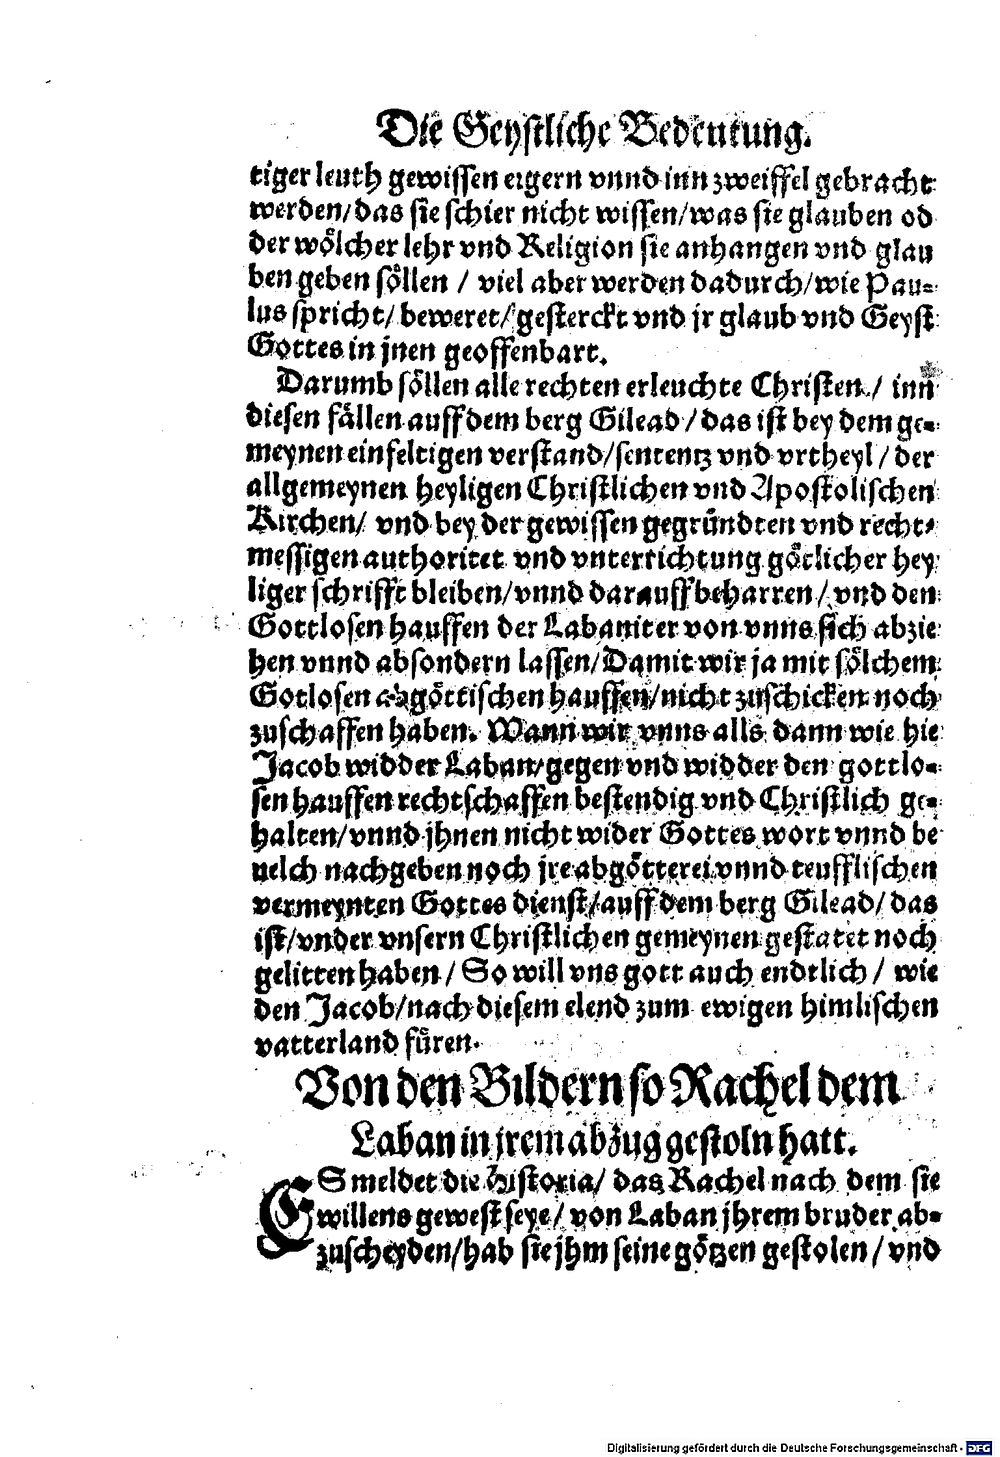 Die Geystliche Bedeutung.
tiger leuth gewissen eigern vnnd inn zweiffel gebracht
werden/das sie schier nicht wissen/was sie glauben od
der wölcher lehr vnd Religion sie anhangen vnd glau
ben geben söllen / viel aber werden dadurch/wie Pau=
lus spricht/ beweret/ gesterckt vnd jr glaub vnd Geyst
Gottes in jnen geoffenbart.
Darumb söllen alle rechten erleuchte Christen / inn
diesen fällen auff dem berg Gilead / das ist bey dem ge=
meynen einfeltigen verstand/sententz vnd vrtheyl / der
allgemeynen heyligen Christlichen vnd Apostolischen
Kirchen/ vnd bey der gewissen gegründten vnd recht=
messigen authoritet vnd vnterrichtung götlicher hey
liger schrifft bleiben/vnnd darauff beharren / vnd den
Gottlosen hauffen der Labaniter von vnns sich abzie
hen vnnd absondern lassen/Damit wir ja mit sölchem
Gotlosen abgöttischen hauffen/nicht zuschicken noch
zuschaffen haben. Wann wir vnns alls dann wie hie
Jacob widder Laban/gegen vnd widder den gottlo=
sen hauffen rechtschaffen bestendig vnd Christlich ge=
halten/vnnd jhnen nicht wider Gottes wort vnnd be
uelch nachgeben noch jre abgötterei vnnd teufflischen
vermeynten Gottes dienst/auff dem berg Gilead/ das
ist/vnder vnsern Christlichen gemeynen gestatet noch
gelitten haben / So will vns gott auch endtlich / wie
den Jacob/nach diesem elend zum ewigen himlischen
vatterland füren.
Von den Bildern so Rachel dem
Laban in jrem abzug gestoln hatt.
ES meldet die Historia/ das Rachel nach dem sie
willens gewest seye/ von Laban jhrem bruder ab=
zuscheyden/hab sie jhm seine götzen gestolen / vnd
Digitalisierung gefördert durch die Deutsche Forschungsgemeinschaft - DFG